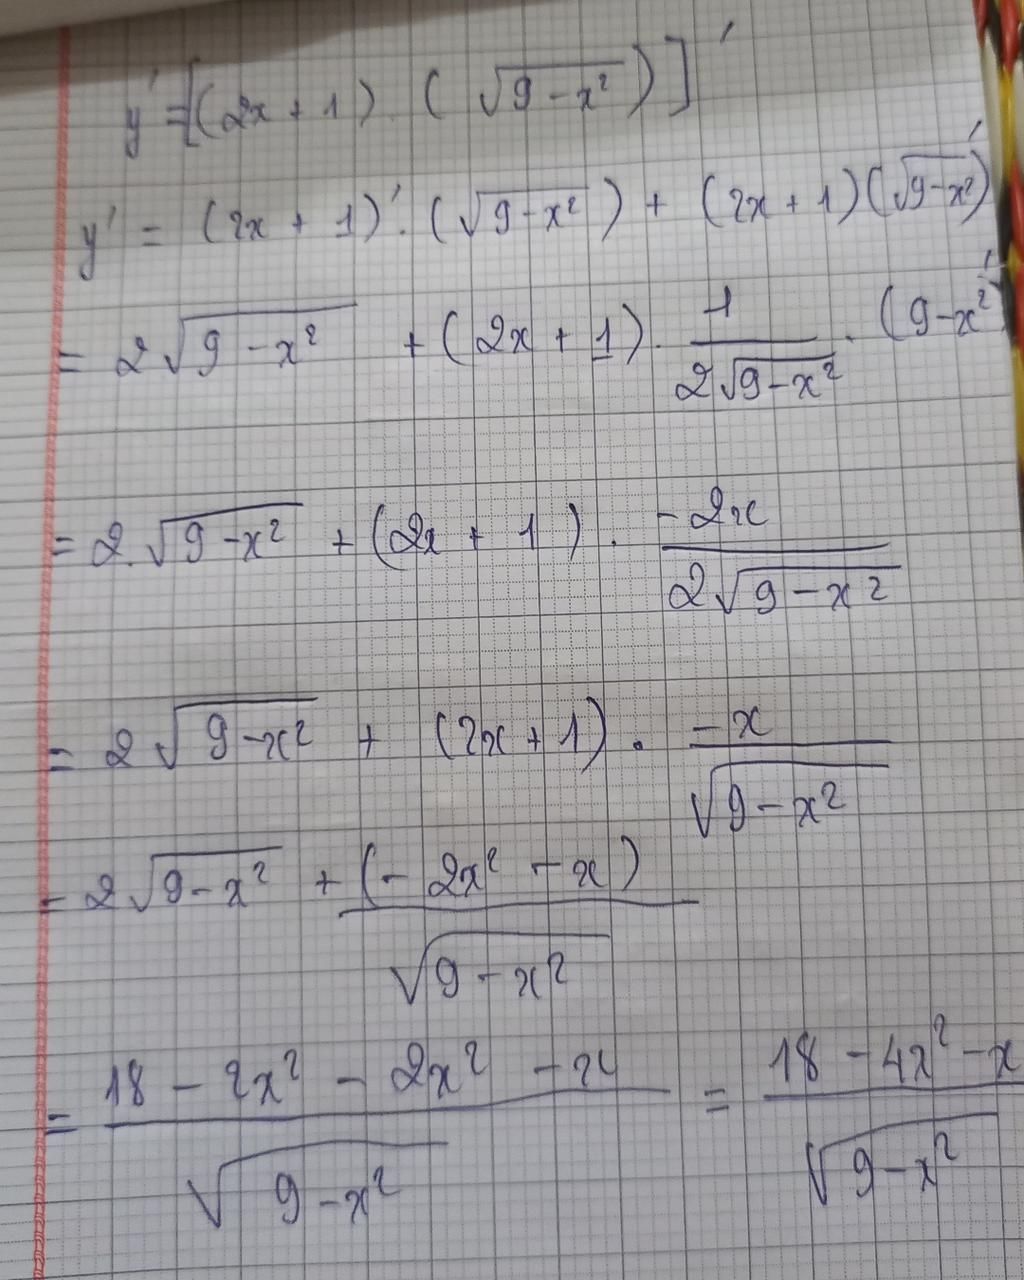 y' = [(2x + 1) · (√(9 - x²))]'
y' = (2x + 1)' · (√(9 - x²)) + (2x + 1)(√(9 - x²))'
= 2√(9 - x²) + (2x + 1) · 1/(2√(9 - x²)) · (9 - x²)'
= 2 · √(9 - x²) + (2x + 1) · (-2x)/(2√(9 - x²))
= 2√(9 - x²) + (2x + 1) · (-x)/(√(9 - x²))
= 2√(9 - x²) + (-2x² - x)/(√(9 - x²))
= (18 - 2x² - 2x² - x)/(√(9 - x²)) = (18 - 4x² - x)/(√(9 - x²))